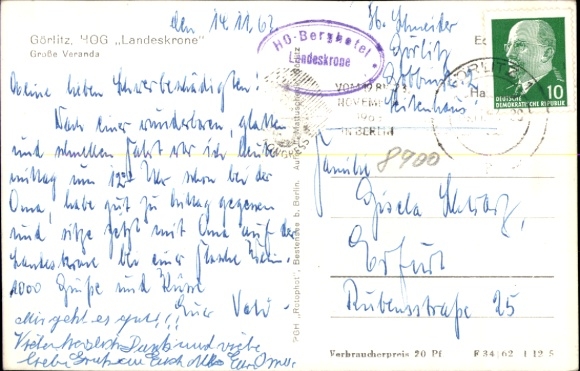 den 14.11.62
Görlitz, HOG „Landeskrone"
Große Veranda
Meine lieben
Nach einer wunderbaren, glatten
und schnellen Fahrt war ich
mittag um 12 Uhr schon bei der
Oma, habe gut zu Mittag gegessen
und sitze jetzt mit Oma auf der
Landeskrone bei einer Flasche Wein.
1000 Grüße und Küsse
Euer Vati -
Mir geht es gut!!
Vielen herzlich Dank und viele
liebe Grüße Euch alles Eure Oma
HO-Berghotel
Landeskrone
PGH „Rotophot", Bestensee b. Berlin.
Abs. Schneider
Görlitz
NOVEM
IN BERLIN
GÖRLITZ
DEUTSCHE
DEMOKRATISCHE REPUBLIK
10
Familie
8900
Gisela
Erfurt
Rubensstraße 25
Verbraucherpreis 20 Pf
F 34/62 I 12 5